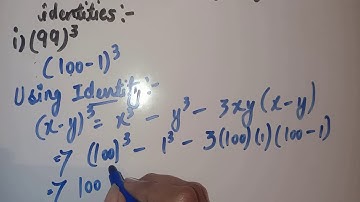 identities:-
i) (99)³
(100-1)³
Using Identity:-
(x-y)³ = x³ - y³ - 3xy(x-y)
=7 (100)³ - 1³ - 3(100)(1)(100-1)
=7 100